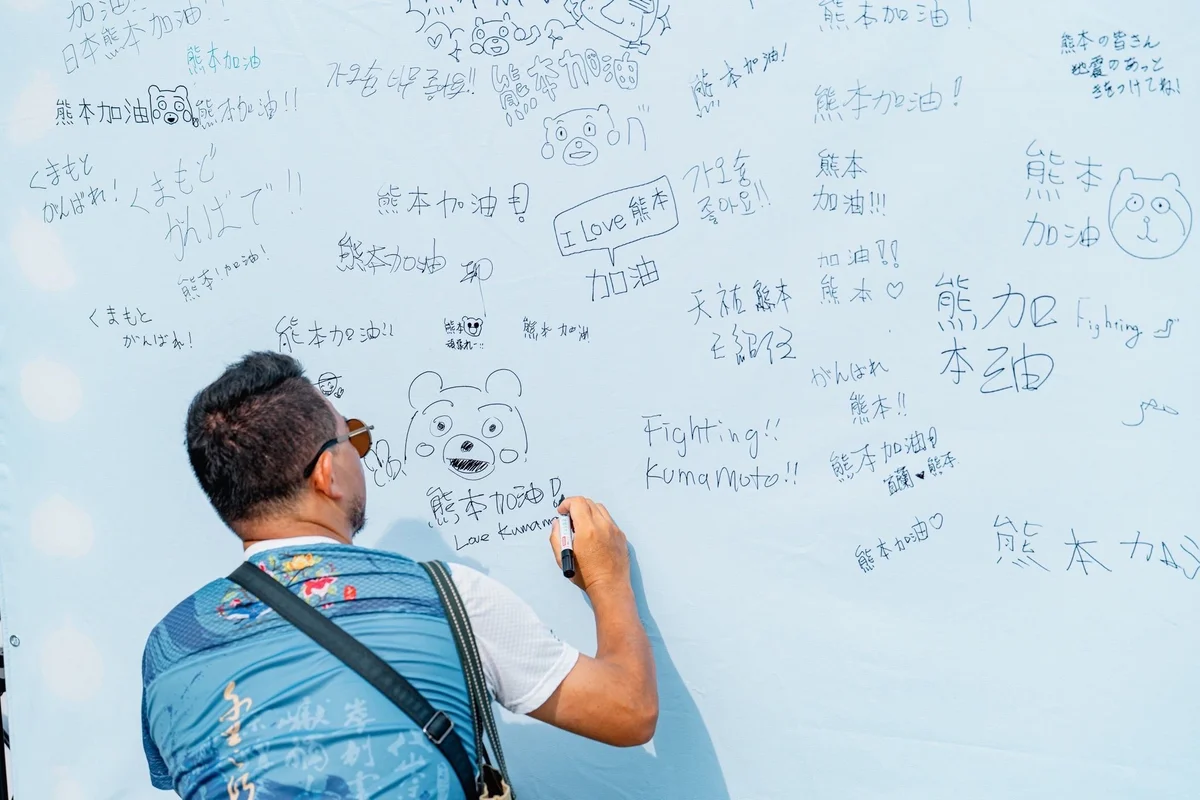 加油!!
日本熊本加油!
熊本加油
熊本加油
熊本加油!!
熊本加油
熊本加油!
熊本加油!
熊本加油!
熊本の皆さん
地震のあっと
気をつけてね!
くまもと
がんばれ!
くまもと
がんばで!!
熊本加油!
I Love 熊本
加油
가오슝
좋아요!!
熊本
加油!!!
熊本
加油
熊本加油
熊本!加油!
加油!!
熊本♡
くまもと
がんばれ!
熊本加油!!
熊本
頑張れ
熊本加油
天祐熊本
熊加
本油
Fighting
がんばれ
熊本!!
Fighting!!
Kumamoto!!
熊本加油!
宜蘭♥熊本
熊本加油!
Love Kumam
熊本加油♡
熊本加